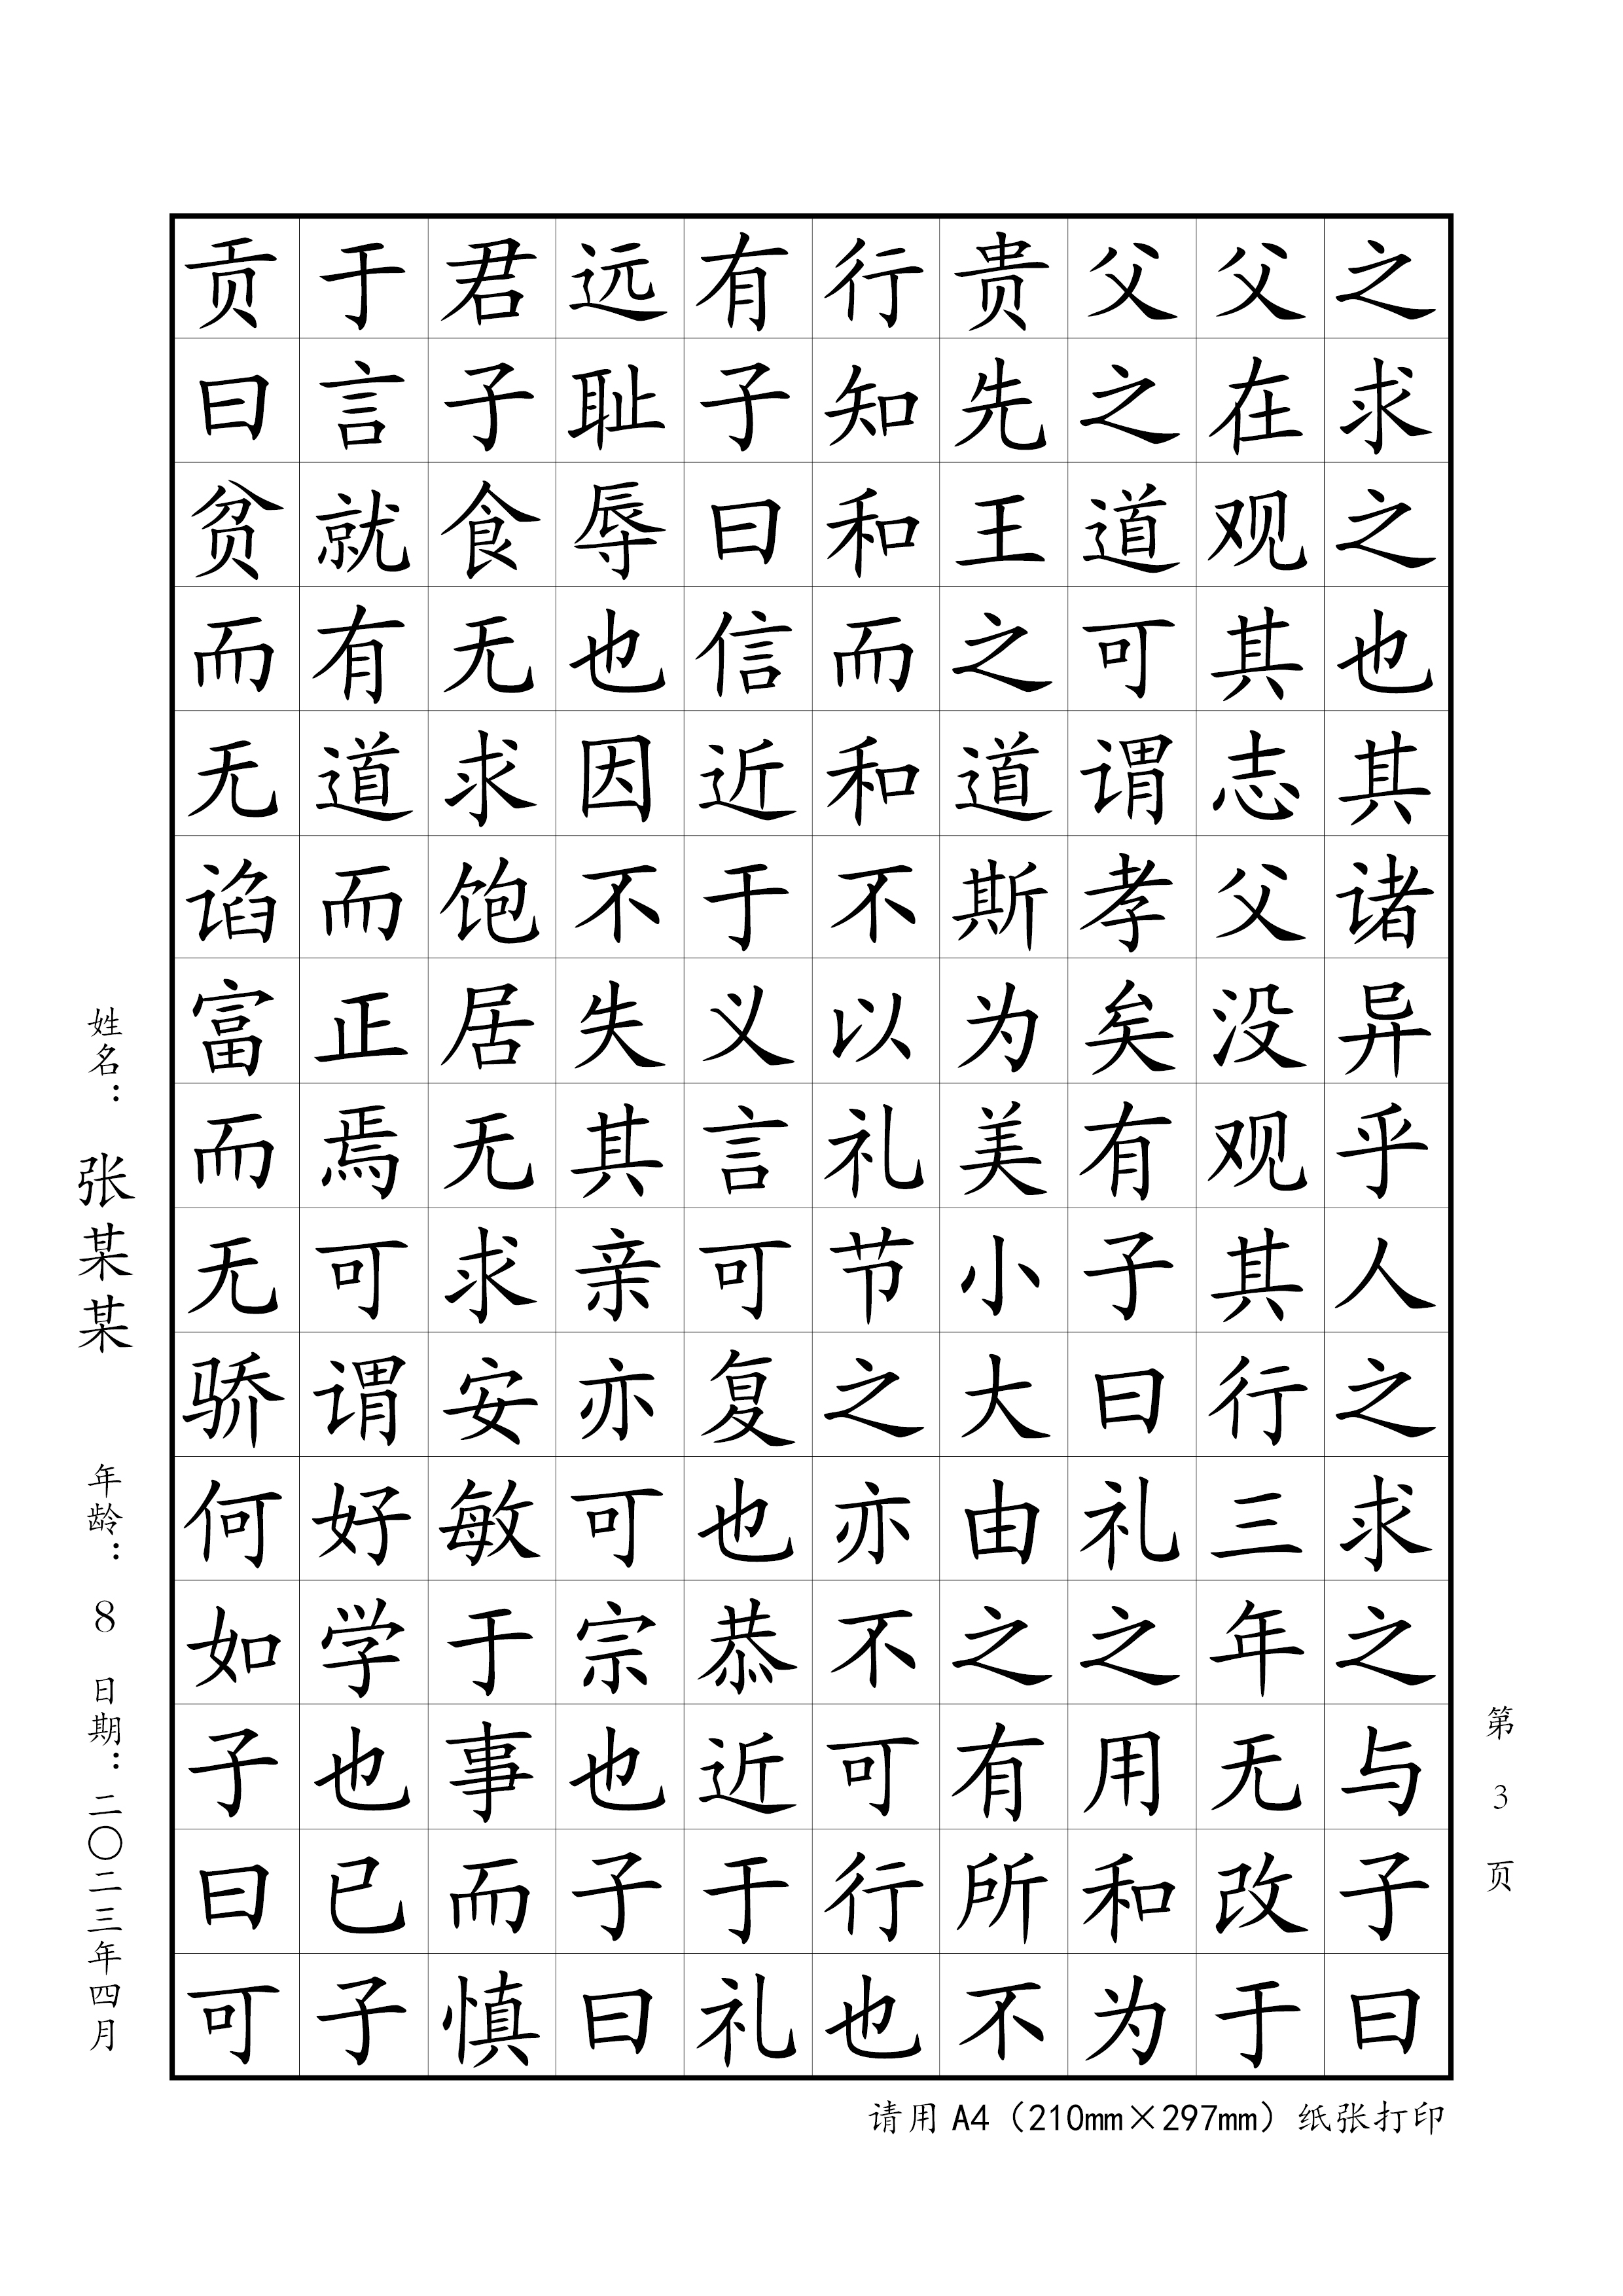 之求之也其诸异乎人之求之与子曰
父在观其志父没观其行三年无改于
父之道可谓孝矣有子曰礼之用和为
贵先王之道斯为美小大由之有所不
行知和而和不以礼节之亦不可行也
有子曰信近于义言可复也恭近于礼
远耻辱也因不失其亲亦可宗也子曰
君子食无求饱居无求安敏于事而慎
于言就有道而正焉可谓好学也已子
贡曰贫而无谄富而无骄何如子曰可
姓名：张某某 年龄：8 日期：二〇二三年四月
第 3 页
请用 A4（210mm×297mm）纸张打印